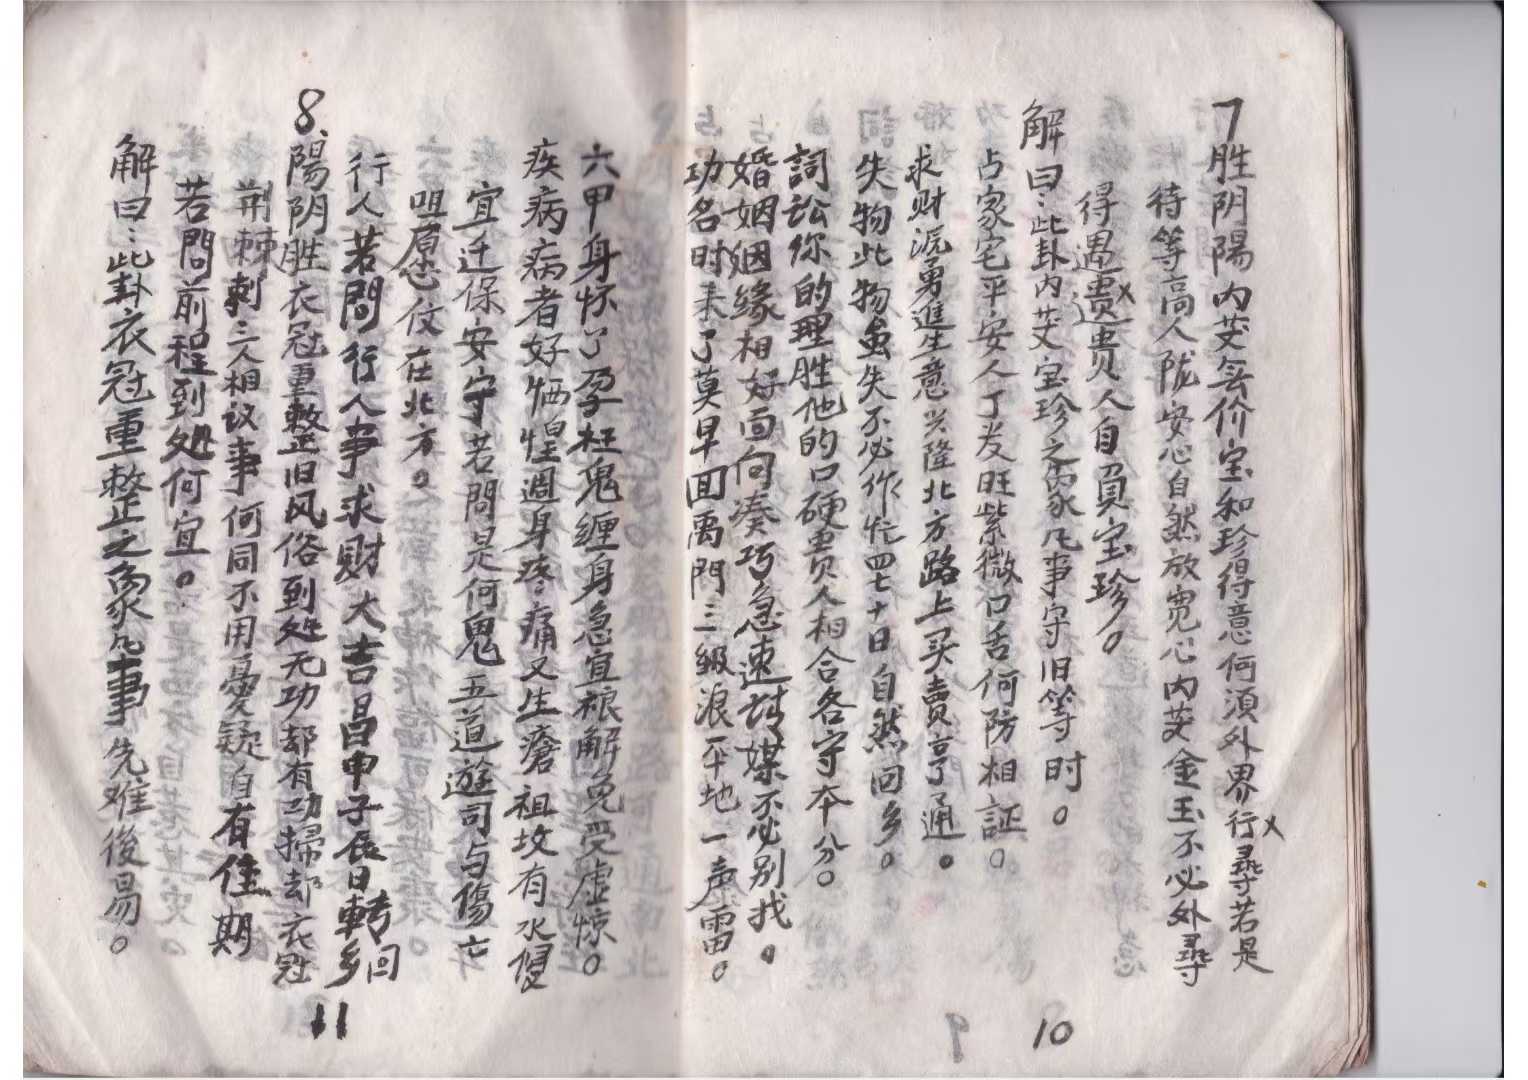 7 胜阴陽内芆無价宝和珍得意何須外界行尋若是
待等高人陇安心自然放宽心内芆金玉不必外尋
得遇遗贵人自負宝珍。
解曰:此卦内芆宝珍之象凡事守旧等时。
占家宅平安人丁发旺紫微口舌何防相証。
求财派勇進生意兴隆北方路上买賣亨通。
失物此物虽失不必作忙四七十日自然回乡。
詞訟你的理胜他的口硬贵人相合各守本分。
婚姻姻缘相好面向凑巧急速請媒不必别找。
功名时来了莫早回禹門三級浪平地一声雷。
10
六甲身怀了孕枉鬼缠身急宜禳解免受虚惊。
疾病病者好恓惶週身疼痛又生瘡祖坟有水侵
宜迁保安守若問是何鬼五道遊司与傷亡
咀愿仗在北方。
行人若問行人事求财大吉昌申子辰日轉回乡
8、陽阴胜衣冠重整旧风俗到处无功却有功掃却衣冠
荊棘刺三人相议事何同不用憂疑自有佳期
若問前程到处何宜。
解曰:此卦衣冠重整之象凡事先难後易。
11